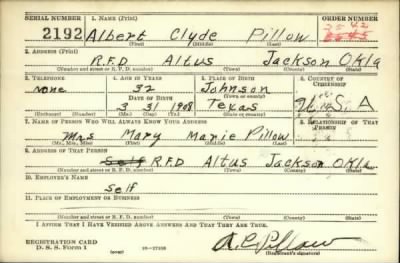 SERIAL NUMBER 1. NAME (Print) ORDER NUMBER
2192 Albert Clyde Pillow 2542
(First) (Middle) (Last)
2. ADDRESS (Print)
R.F.D Altus Jackson Okla
(Number and street or R. F. D. number) (Town) (County) (State)
3. TELEPHONE 4. AGE IN YEARS 5. PLACE OF BIRTH 6. COUNTRY OF CITIZENSHIP
none 32 Johnson
DATE OF BIRTH (Town or county)
3 31 1908 Texas U.S.A
(Exchange) (Number) (Mo.) (Day) (Yr.) (State or country)
7. NAME OF PERSON WHO WILL ALWAYS KNOW YOUR ADDRESS 8. RELATIONSHIP OF THAT PERSON
Mrs Mary Marie Pillow
(Mr., Mrs., Miss) (First) (Middle) (Last)
9. ADDRESS OF THAT PERSON
Self R.F.D Altus Jackson Okla
(Number and street or R. F. D. number) (Town) (County) (State)
10. EMPLOYER'S NAME
Self
11. PLACE OF EMPLOYMENT OR BUSINESS
(Number and street or R. F. D. number) (Town) (County) (State)
I AFFIRM THAT I HAVE VERIFIED ABOVE ANSWERS AND THAT THEY ARE TRUE.
REGISTRATION CARD
D. S. S. Form 1 (over) 16—17105 A.C. Pillow
(Registrant's signature)